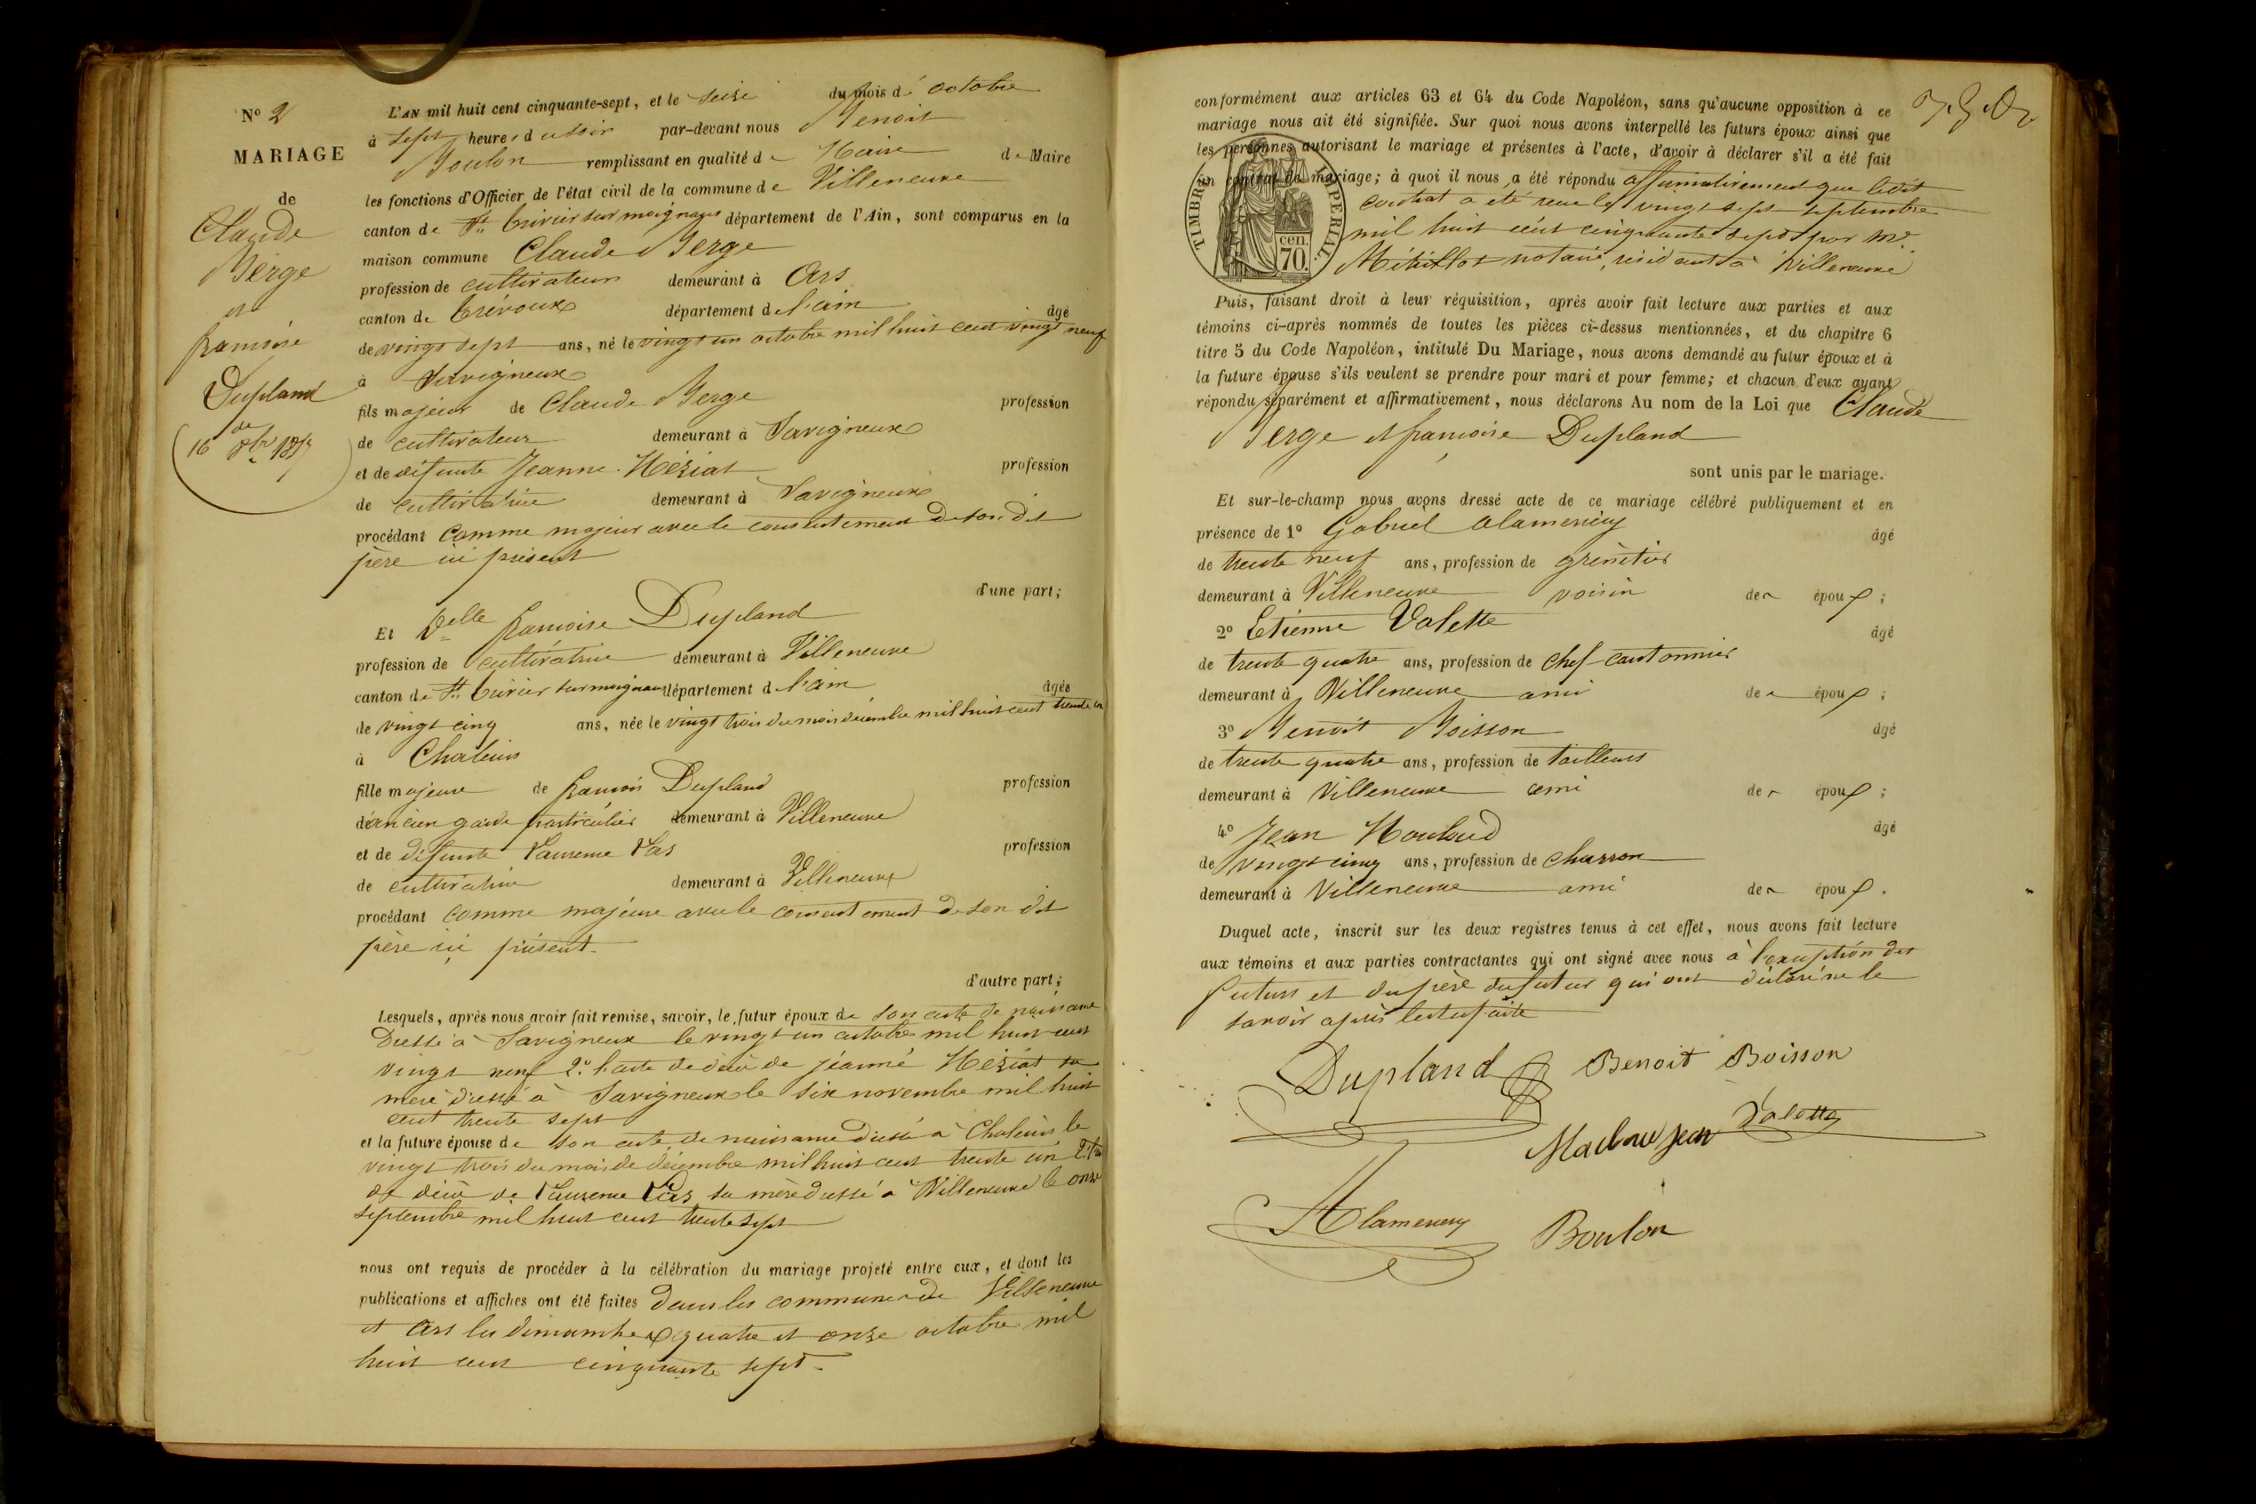 N° 2
MARIAGE
de
Claude
Berge
et
françoise
Dupland
du
16 8bre 1857
L'AN mil huit cent cinquante-sept, et le seize du mois d' octobre
à sept heures du soir par-devant nous Benoit
Boulon remplissant en qualité de Maire de Maire
les fonctions d'Officier de l'état civil de la commune de Villeneuve
canton de St. Trivier sur moignans département de l'Ain, sont comparus en la
maison commune Claude Berge
profession de cultivateur demeurant à Ars
canton de Trévoux département de l'ain âgé
de vingt sept ans, né le vingt un octobre mil huit cent vingt neuf
à Savigneux
fils majeur de Claude Berge profession
de cultivateur demeurant à Savigneux
et de défunte Jeanne Méziat profession
de cultivatrice demeurant à Savigneux
procédant comme majeur avec le consentement de son dit
père ici présent
d'une part;
Et Delle françoise Dupland
profession de cultivatrice demeurant à Villeneuve
canton de St. Trivier sur moignans département de l'ain âgée
de vingt cinq ans, née le vingt trois du mois décembre mil huit cent trente un
à Chaleins
fille majeure de françois Dupland profession
d'ancien garde particulier demeurant à Villeneuve
et de défunte Laurence profession
de cultivatrice demeurant à Villeneuve
procédant comme majeure avec le consentement de son dit
père ici présent.
d'autre part;
Lesquels, après nous avoir fait remise, savoir, le futur époux de son acte de naissance
Dressé à Savigneux le vingt un octobre mil huit cent
vingt neuf 2° l'acte de décès de jeanne Méziat sa
mère dressé à Savigneux le six novembre mil huit
cent trente sept
et la future épouse de son acte de naissance dressé à Chaleins le
vingt trois du mois de décembre mil huit cent trente un 2°
de décès de Laurence sa mère dressé à Villeneuve le onze
septembre mil huit cent trente sept
nous ont requis de procéder à la célébration du mariage projeté entre eux, et dont les
publications et affiches ont été faites dans les communes de Villeneuve
et Ars les dimanches quatre et onze octobre mil
huit cent cinquante sept.
conformément aux articles 63 et 64 du Code Napoléon, sans qu'aucune opposition à ce
mariage nous ait été signifiée. Sur quoi nous avons interpellé les futurs époux ainsi que
les personnes autorisant le mariage et présentes à l'acte, d'avoir à déclarer s'il a été fait
un contrat de mariage; à quoi il nous a été répondu affirmativement que ledit
contrat a été reçu le vingt sept septembre
mil huit cent cinquante sept par Me.
notaire, résidant à Villeneuve
TIMBRE IMPERIAL.
cen.
70.
Puis, faisant droit à leur réquisition, après avoir fait lecture aux parties et aux
témoins ci-après nommés de toutes les pièces ci-dessus mentionnées, et du chapitre 6
titre 5 du Code Napoléon, intitulé Du Mariage, nous avons demandé au futur époux et à
la future épouse s'ils veulent se prendre pour mari et pour femme; et chacun d'eux ayant
répondu séparément et affirmativement, nous déclarons Au nom de la Loi que Claude
Berge et françoise Dupland
sont unis par le mariage.
Et sur-le-champ nous avons dressé acte de ce mariage célébré publiquement et en
présence de 1° Gabriel Alamercery âgé
de trente neuf ans, profession de grènetier
demeurant à Villeneuve voisin des époux;
2° Etienne Valette âgé
de trente quatre ans, profession de chef-cantonnier
demeurant à Villeneuve ami des époux;
3° Benoit Boisson âgé
de trente quatre ans, profession de tailleurs
demeurant à Villeneuve ami des époux;
4° Jean âgé
de vingt cinq ans, profession de charron
demeurant à Villeneuve ami des époux.
Duquel acte, inscrit sur les deux registres tenus à cet effet, nous avons fait lecture
aux témoins et aux parties contractantes qui ont signé avec nous à l'exception des
futurs et du père du futur qui ont déclaré ne le
savoir après lecture faite
Dupland Benoit Boisson
Valette
Jean
Alamercery Boulon